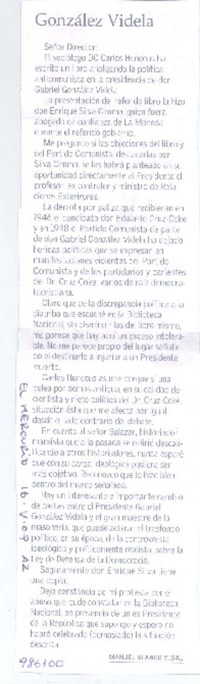 González Videla
Señor Director:
El sociólogo DC Carlos Huneeus ha
escrito un libro analizando la política
anticomunista en la presidencia de don
Gabriel González Videla.
La presentación del referido libro la hizo
don Enrique Silva Cimma, quien fuera
abogado de confianza de La Moneda
durante el referido gobierno.
Me pregunto si las objeciones del libro y
del Partido Comunista, destacadas por
Silva Cimma, se las habrá planteado en su
oportunidad directamente al Presidente el
profesor, ex contralor y ministro de Rela-
ciones Exteriores.
La derrota por paliza que recibieran en
1946 el candidato don Eduardo Cruz-Coke
y en 1948 el Partido Comunista de parte
de don Gabriel González Videla ha dejado
heridas políticas que se expresan en
manifestaciones del Par
Comunista y de los partidarios y parientes
del Dr. Cruz-Coke, varios de raíz democra-
tacristiana.
Claro que de la discrepancia política a la
diatriba que escuché en la Biblioteca
Nacional, sin
me parece que hay aquí un exceso intolera-
ble. No me parece propio del lugar señala-
do el destinarlo a injuriar a un Presidente
muerto.
Carlos Huneeus asume
de
cientista y nieto político del Dr. Cruz Coke,
situación ésta que me afecta por igual
desde el lado contrario del debate.
En cuanto al señor Salazar, historiador
marxista que a la pasada se refirió descali-
ficando a otros historiadores, nunca esperé
que con su carga ideológica pudiera ser
más objetivo. Reconozco que lo hizo bien
dentro del marco señalado.
Hay un interesante e importante cambio
de cartas entre el Presidente Gabriel
González Videla y el gran maestre de la
masonería, que puede aclarar el trasfondo
político, en su época, de la controversia
ideológica y políticamente revisada sobre la
Ley de Defensa de la Democracia.
Seguramente don Enrique Silva tiene
una copia.
Dejo constancia de mi protesta por el
abuso que pude constatar en la Biblioteca
Nacional, en presencia de un ex Presidente
de la República que supongo y espero no
habrá celebrado (demasiado) la situación
descrita.
MANUEL BLANCO VIDAL
EL MERCURIO 16.V.09 A2
986100